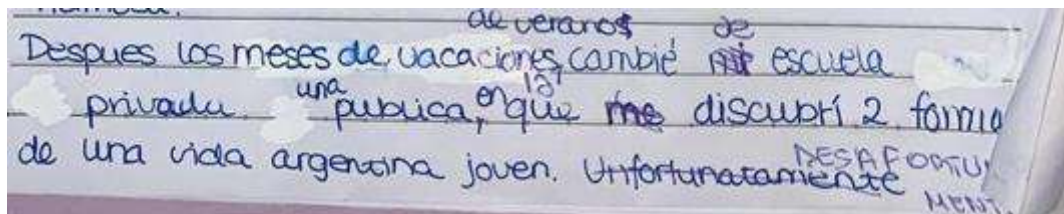 de veranos de
Despues los meses de vacaciones, cambié escuela
privada. una publica, en la que me discubrí 2 forma
de una vida argentina joven. Unfortunatamente
DESAFORTU
MENT